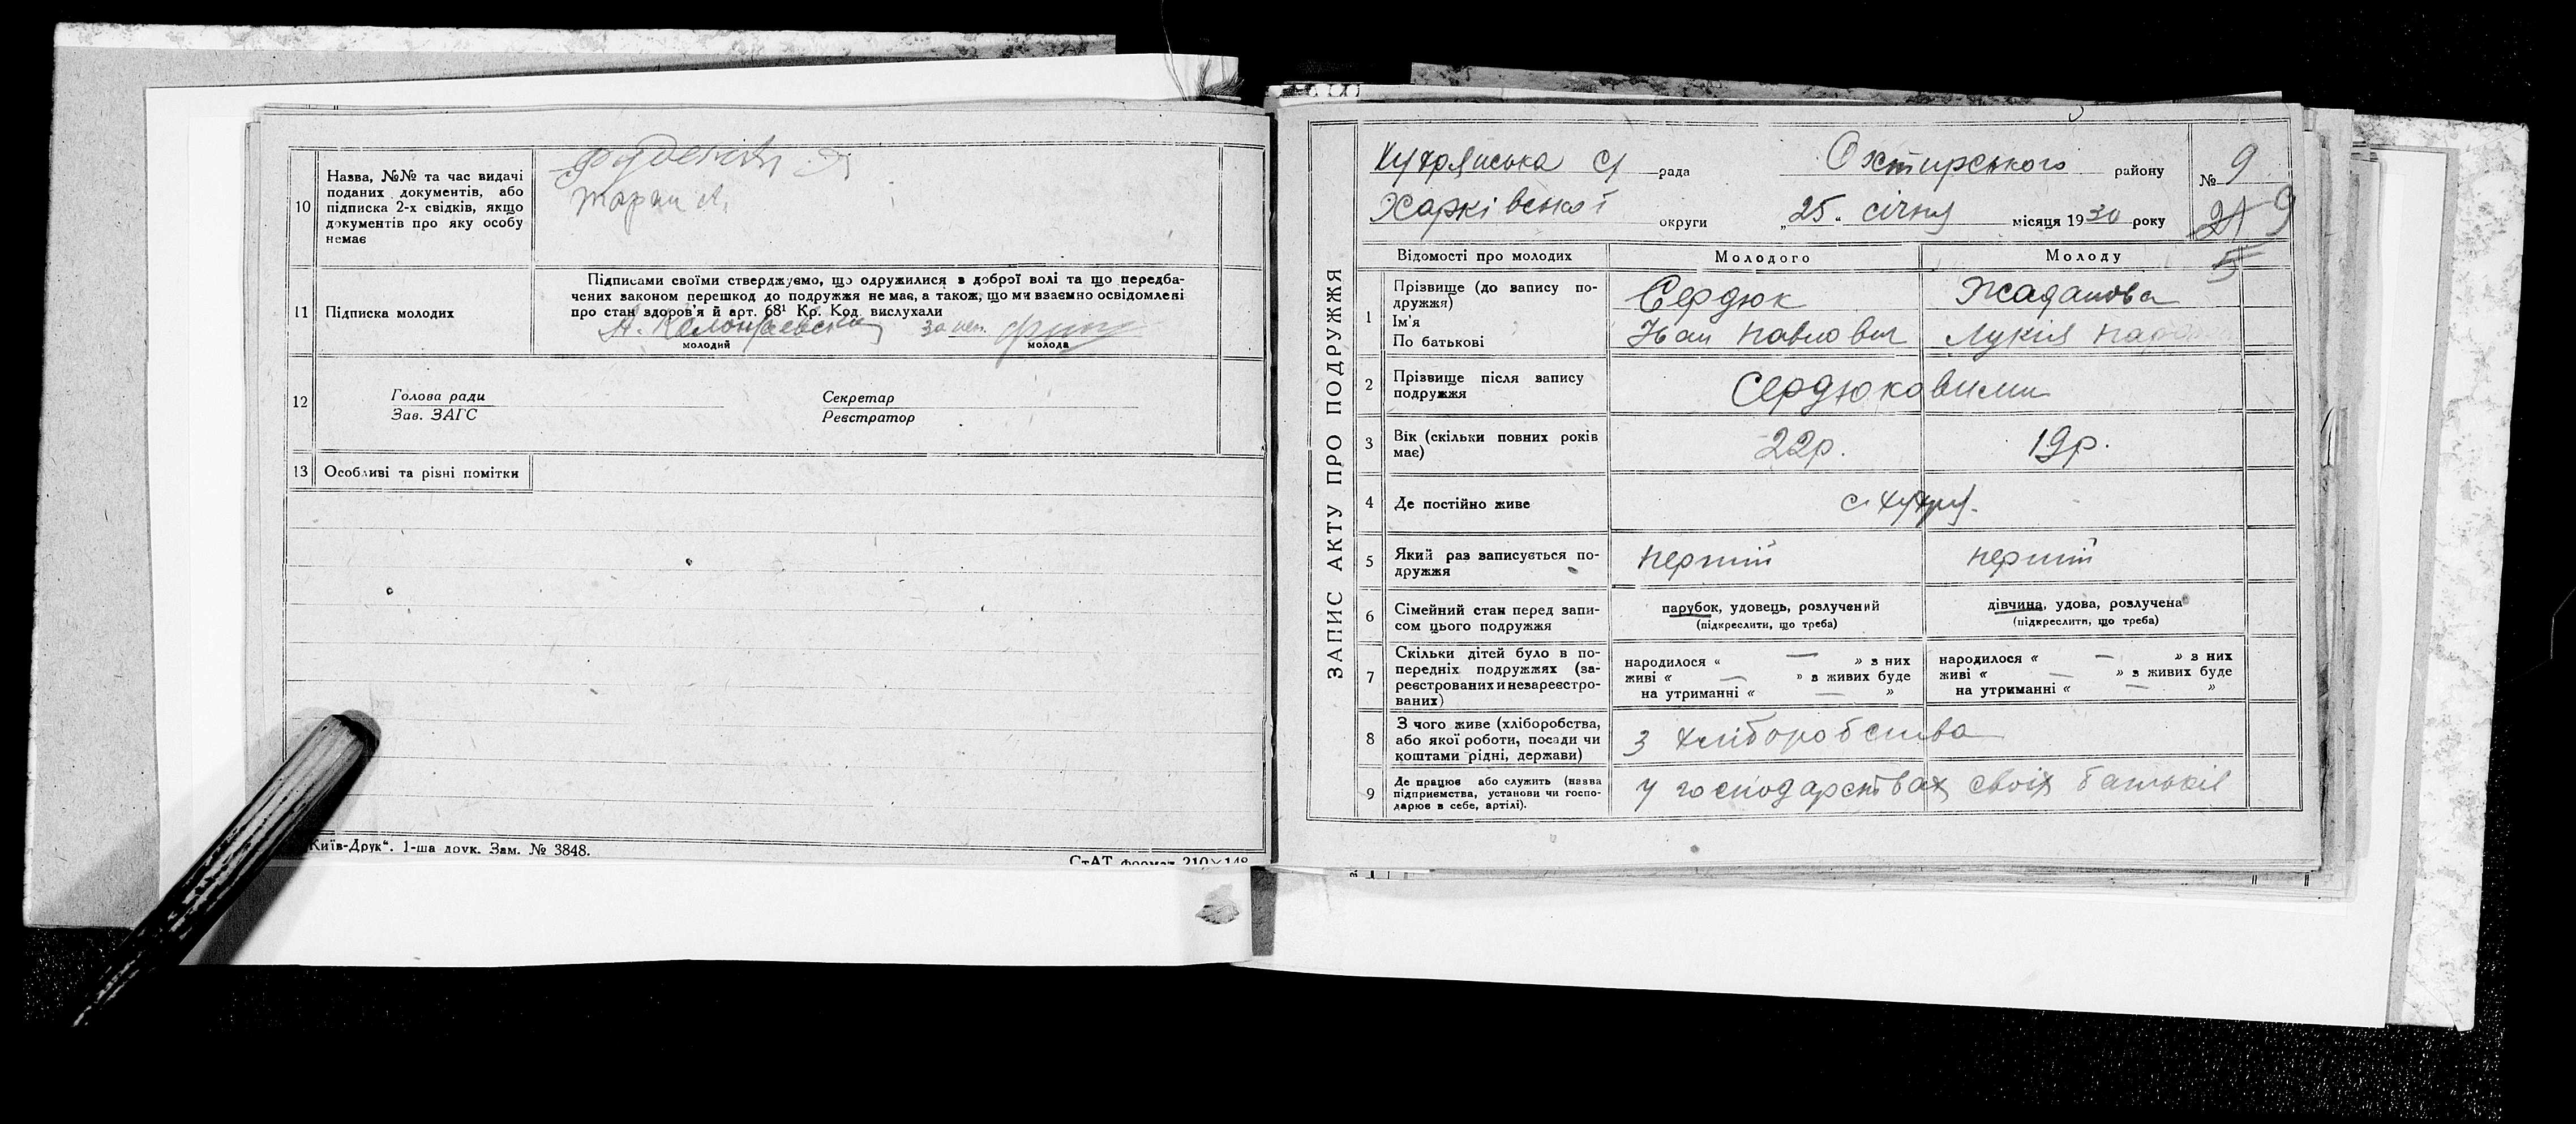 10
Назва, №№ та час видачі
поданих документів, або
підписка 2-х свідків, якщо
документів про яку особу
немає
11
Підписка молодих
Підписами своїми стверджуємо, що одружилися з доброї волі та що передба-
чених законом перешкод до подружжя не має, а також, що ми взаємно освідомлені
про стан здоров'я й арт. 68¹ Кр. Код. вислухали
молодий
молода
12
Голова ради
Зав. ЗАГС
Секретар
Реєстратор
13
Особливі та різні помітки
Київ-Друк“. 1-ша друк. Зам. № 3848.
СтАТ формат 210×148
ЗАПИС АКТУ ПРО ПОДРУЖЖЯ
с/ рада Охтирського району
№ 9
Харківської округи „25“ січня місяця 1930 року
21 9
5
Відомості про молодих
Молодого
Молоду
1
Прізвище (до запису по-
дружжя)
Ім'я
По батькові
Сердюк
Жаданова
Іван Павлович
Лукія
2
Прізвище після запису
подружжя
Сердюковими
3
Вік (скільки повних років
має)
22р.
19р.
4
Де постійно живе
с.
5
Який раз записується по-
дружжя
перший
перший
6
Сімейний стан перед запи-
сом цього подружжя
парубок, удовець, розлучений
(підкреслити, що треба)
дівчина, удова, розлучена
(підкреслити, що треба)
7
Скільки дітей було в по-
передніх подружжях (за-
реєстрованих и незареєстро-
ваних)
народилося « — » з них
живі « — » в живих буде
на утриманні « — »
народилося « — » з них
живі « — » з живих буде
на утриманні « — »
8
З чого живе (хліборобства,
або якої роботи, посади чи
коштами рідні, держави)
З хліборобства
9
Де працює або служить (назва
підприємства, установи чи госпо-
дарює в себе, артілі).
У господарствах своїх батьків